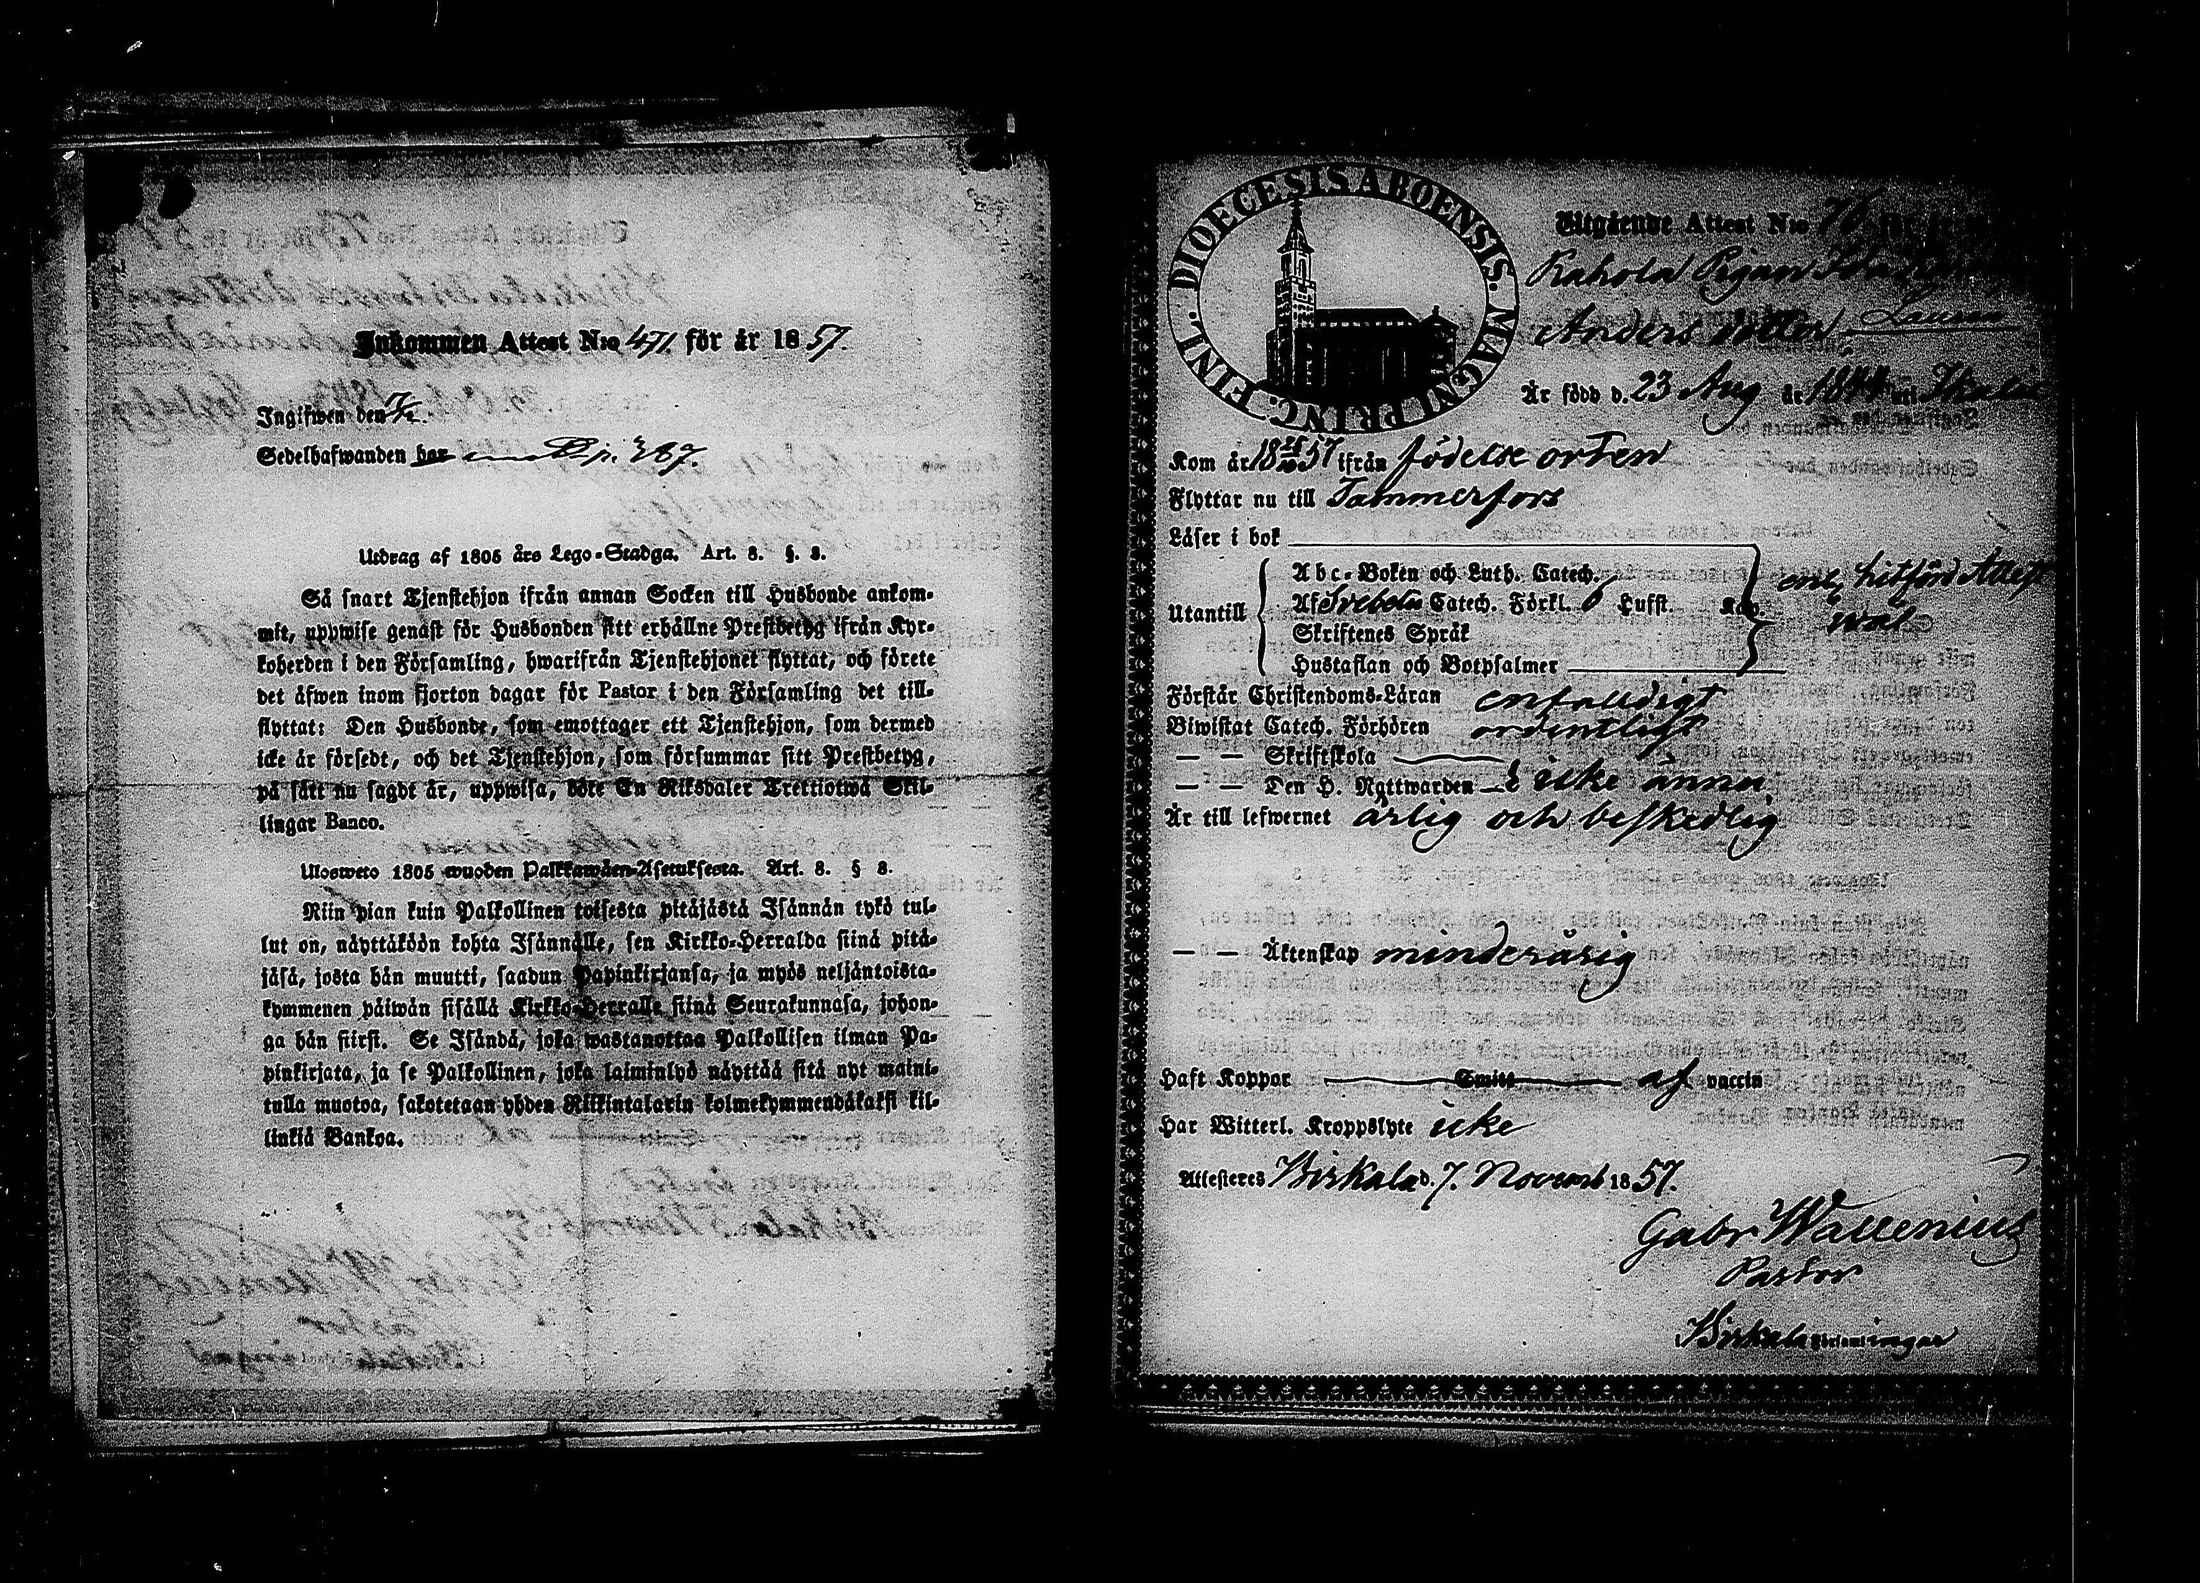 Inkommen Attest N:o 471. för år 1857.
Ingifwen den 7/12.
Sedelhafwanden har p. 387.
Utdrag af 1805 års Lego-Stadga. Art. 8. §. 8.
Så snart Tjenstehjon ifrån annan Socken till Husbonde ankom-
mit, uppwise genast för Husbonden sitt erhållne Prestbetyg ifrån Kyr-
koherden i den Församling, hwarifrån Tjenstehjonet flyttat, och förete
det äfwen inom fjorton dagar för Pastor i den Församling det till-
flyttat: Den Husbonde, som emottager ett Tjenstehjon, som dermed
icke är försedt, och det Tjenstehjon, som försummar sitt Prestbetyg,
på sätt nu sagdt är, uppwisa, böte En Riksdaler Trettiotwå Skil-
lingar Banco.
Ulosweto 1805 wuoden Palkkawäen-Asetuksesta. Art. 8. § 8.
Niin pian kuin Palkollinen toisesta pitäjästä Isännän tykö tul-
lut on, näyttäköön kohta Isännälle, sen Kirkko-Herralda siinä pitä-
jäsä, josta hän muutti, saadun Papinkirjansa, ja myös neljäntoista-
kymmenen päiwän sisällä Kirkko-Herralle siinä Seurakunnasa, johon-
ga hän siirsi. Se Isändä, joka wastanottaa Palkollisen ilman Pa-
pinkirjata, ja se Palkollinen, joka laiminlyö näyttää sitä nyt maini-
tulla muotoa, sakotetaan yhden Riikintalarin kolmekymmendäkaksi kil-
linkiä Bankoa.
DIOECESIS ABOENSIS. MAGNI PRINC. FINL.
Utgående Attest N:o 76
Rahola Pigan
Anders dotter
Är född d. 23 Aug år 1844 uti
Kom år 1857 ifrån födelse orten
Flyttar nu till Tammerfors
Läser i bok
Utantill
Abc-Boken och Luth. Catech.
Af Svebelii Catech. Förkl. 6 Hufst. Kap.
Skriftenes Språk
Hustaflan och Botpsalmer
enl. hitförd Attest
wäl
Förstår Christendoms-Läran enfaldigt
Biwistat Catech. Förhören ordentligt
— — Skriftskola
— — Den H. Nattwarden icke ännu
Är till lefwernet ärlig och beskedlig
— — Äktenskap minderårig
Haft Koppor Smitt af vaccin
Har Witterl. Kroppslyte icke
Attesteres Birkala d. 7. Novemb 1857.
Gabr Wallenius
Pastor
Birkala